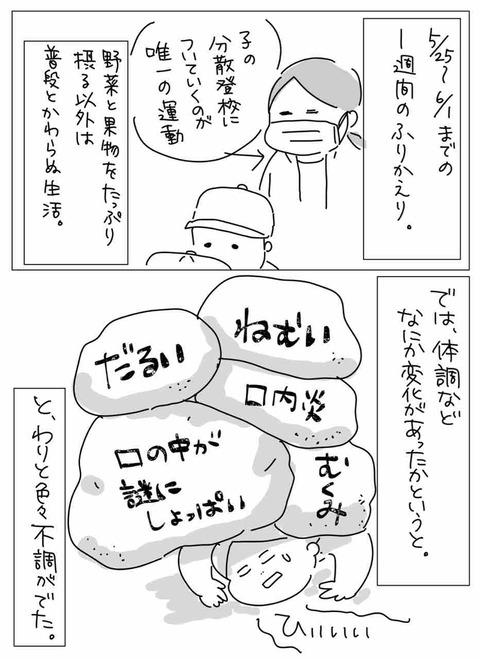 5/25〜6/1までの
一週間のふりかえり。
子の
分散登校に
ついていくのが
唯一の運動
野菜と果物をたっぷり
摂る以外は
普段とかわらぬ生活。
では、体調など
なにか変化があったかというと。
ねむい
だるい
口内炎
むくみ
口の中が
謎に
しょっぱい
ひぃいいい
と、わりと色々不調がでた。